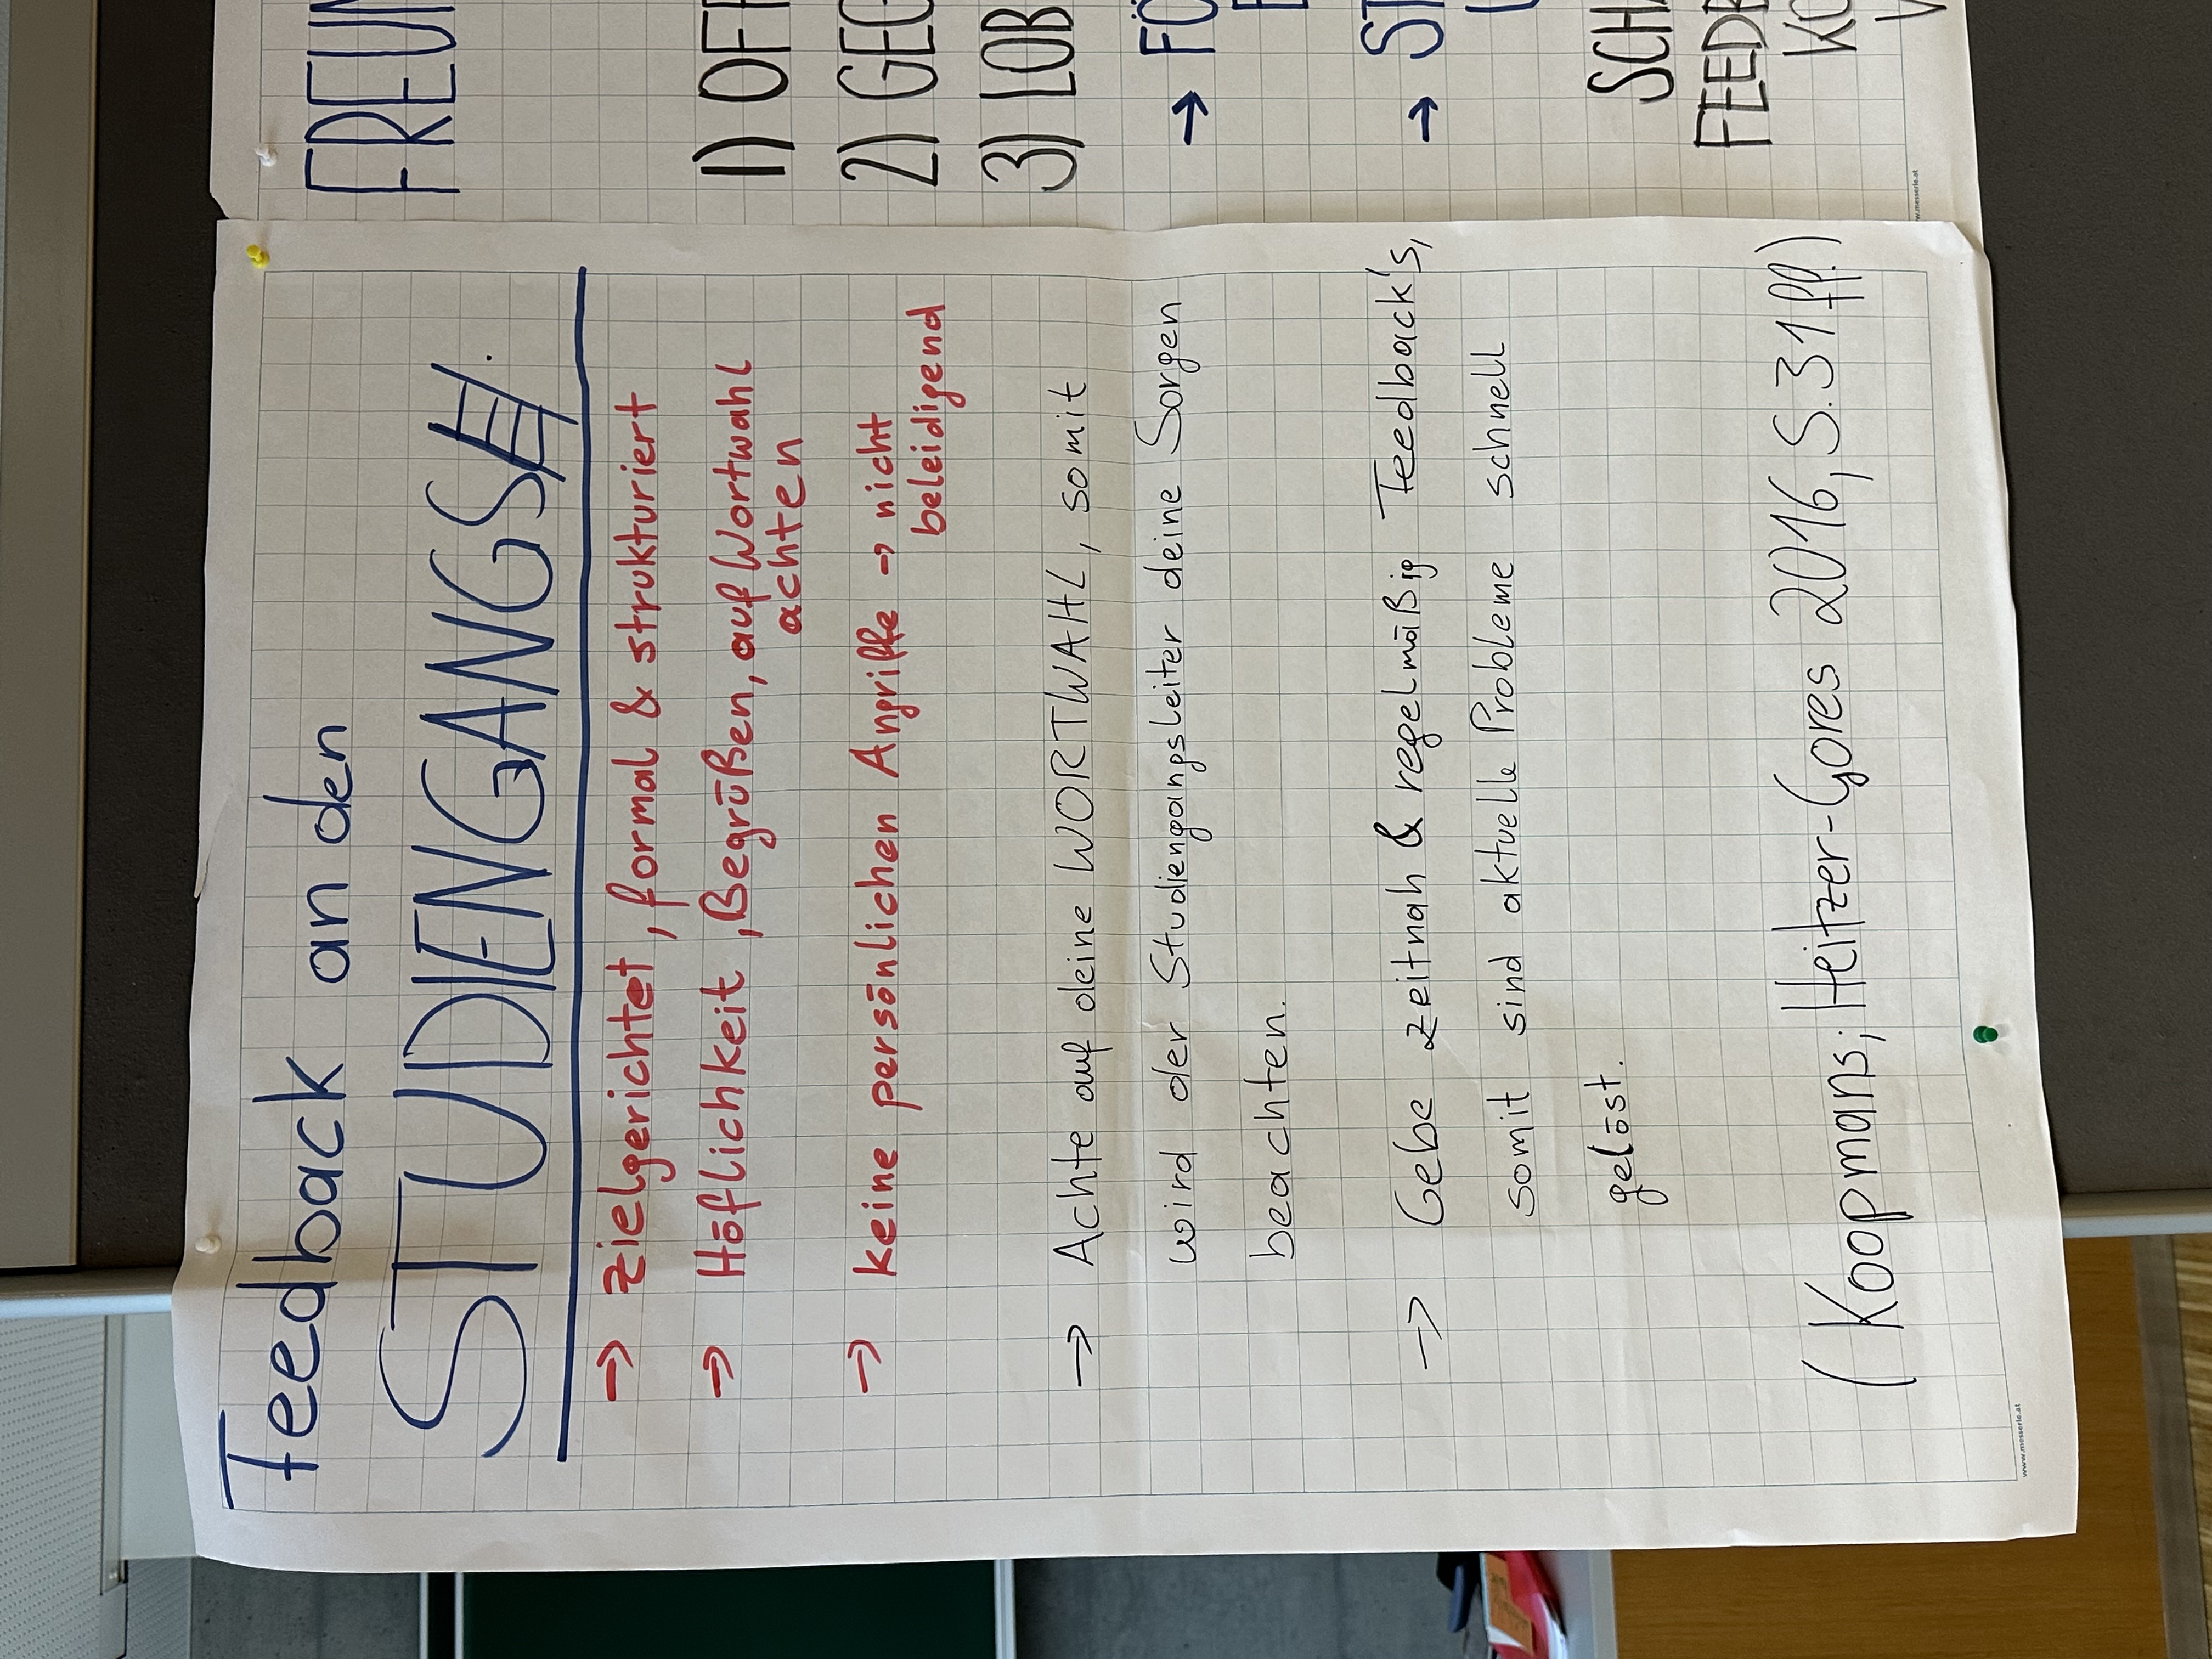 Feedback an den
STUDIENGANGS
→ zielgerichtet, formal & strukturiert
→ Höflichkeit, Begrüßen, auf Wortwahl
achten
→ keine persönlichen Angriffe → nicht
beleidigend
→ Achte auf deine WORTWAHL, somit
wird der Studiengangsleiter deine Sorgen
beachten.
→ Gebe zeitnah & regelmäßig Feedback's,
somit sind aktuelle Probleme schnell
gelöst.
(Koopmans; Heitzer-Gores 2016, S. 31 ff.)
www.messerle.at
FREUN
1) OFF
2) GEG
3) LOB
→ FÖ
→ ST
SCHA
FEEDB
KO
w.messerle.at